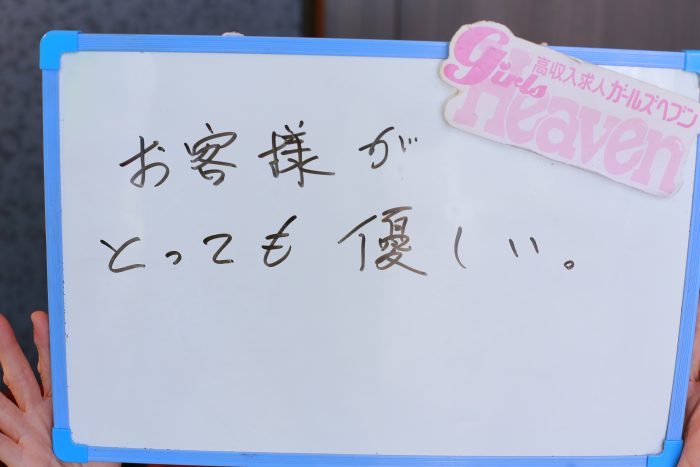 Girls Heaven
高収入求人 ガールズヘブン
お客様が
とっても優しい。